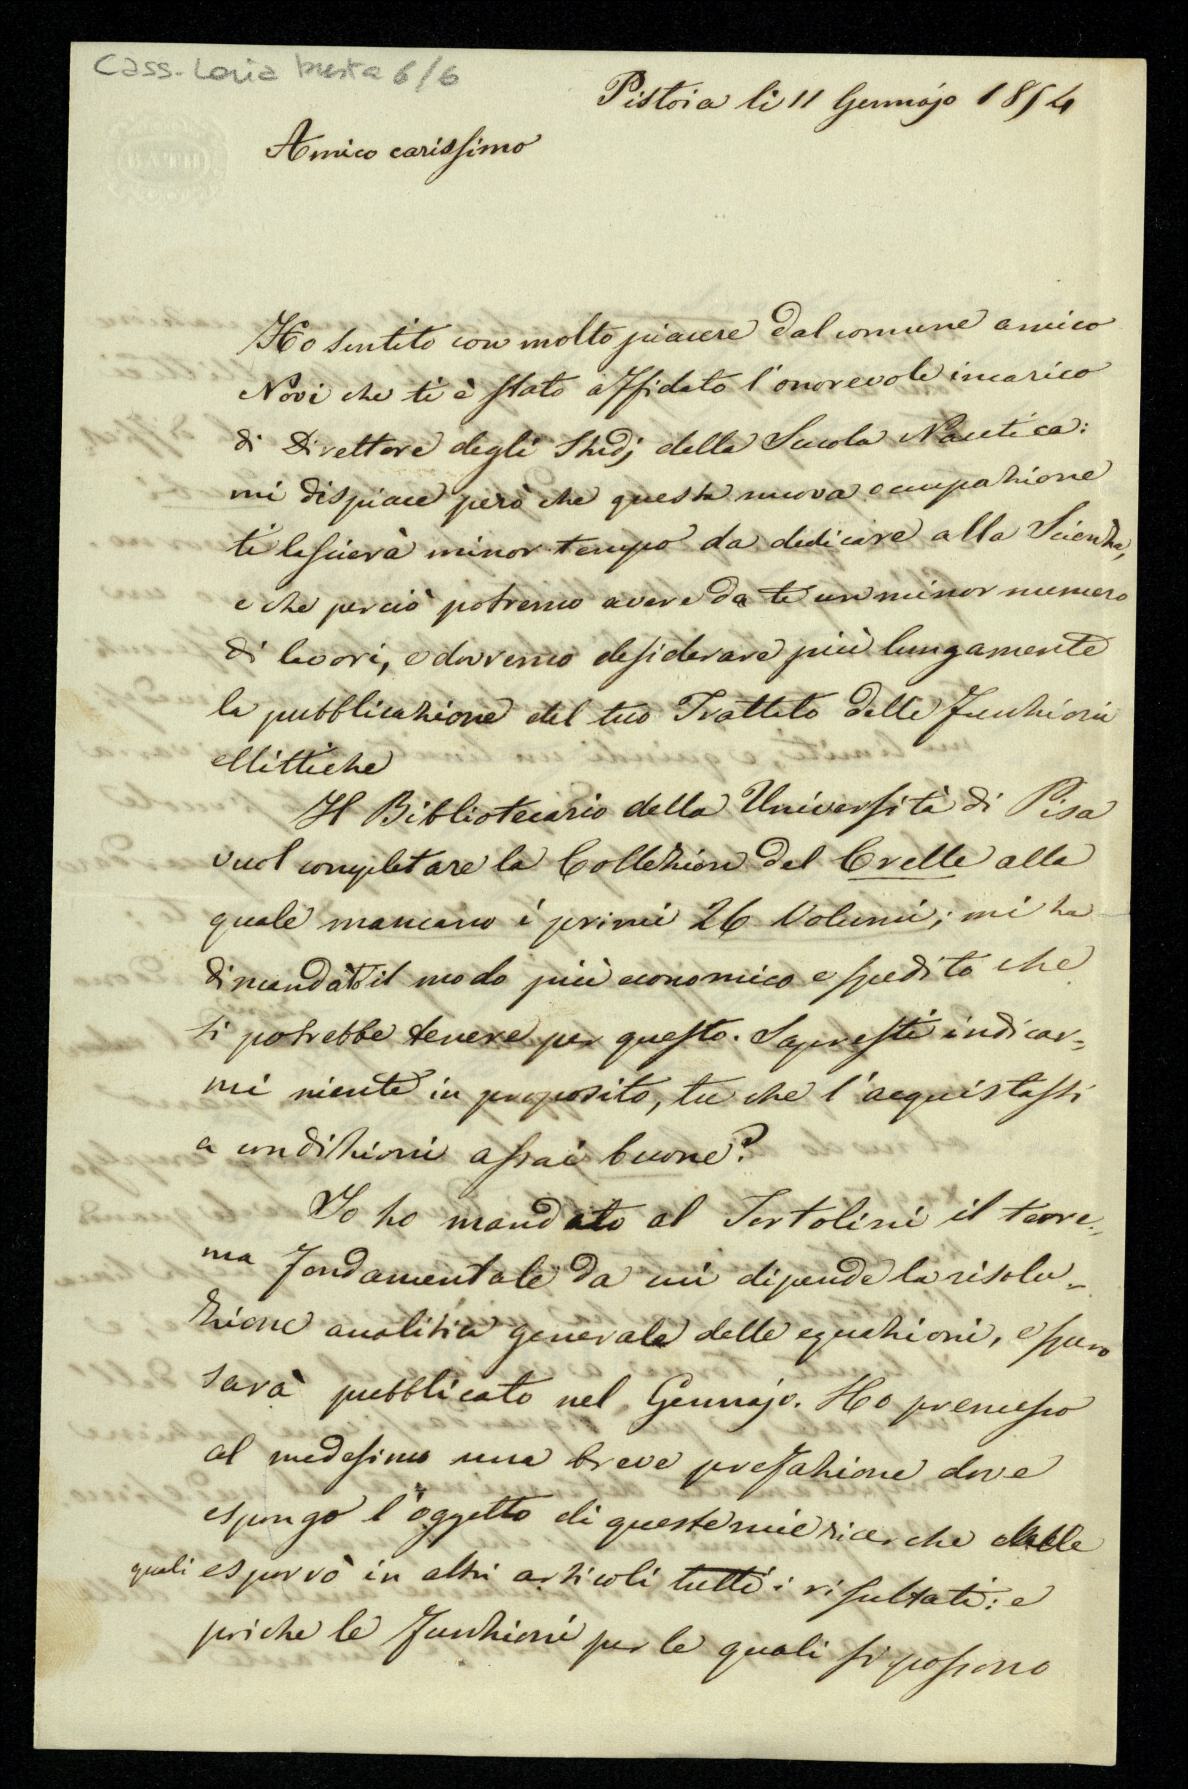 Cass. Loria busta 6/6
Pistoia li 11 Gennajo 1854
BATH
Amico carissimo
Ho sentito con molto piacere dal comune amico
Novi che ti è stato affidato l'onorevole incarico
di Direttore degli Studj della Scuola Nautica:
mi dispiace però che questa nuova occupazione
ti lascierà minor tempo da dedicare alla Scienza,
e che perciò potremo avere da te un minor numero
di lavori, e dovremo desiderare più lungamente
la pubblicazione del tuo Trattato delle Funzioni
ellittiche
Il Bibliotecario della Università di Pisa
vuol completare la Collezion del Crelle alla
quale mancano i primi 26 Volumi; mi ha
dimandato il modo più economico e spedito che
si potrebbe tenere per questo. Sapresti indicar=
mi niente in proposito, tu che l'acquistasti
a condizioni assai buone?
Io ho mandato al Tortolini il teore=
ma fondamentale da cui dipende la risolu=
zione analitica generale delle equazioni, e spero
sarà pubblicato nel Gennajo. Ho premesso
al medesimo una breve prefazione dove
espongo l'oggetto di queste mie ricerche delle
quali esporrò in altri articoli tutti i risultati: e
poiche le funzioni per le quali si possono